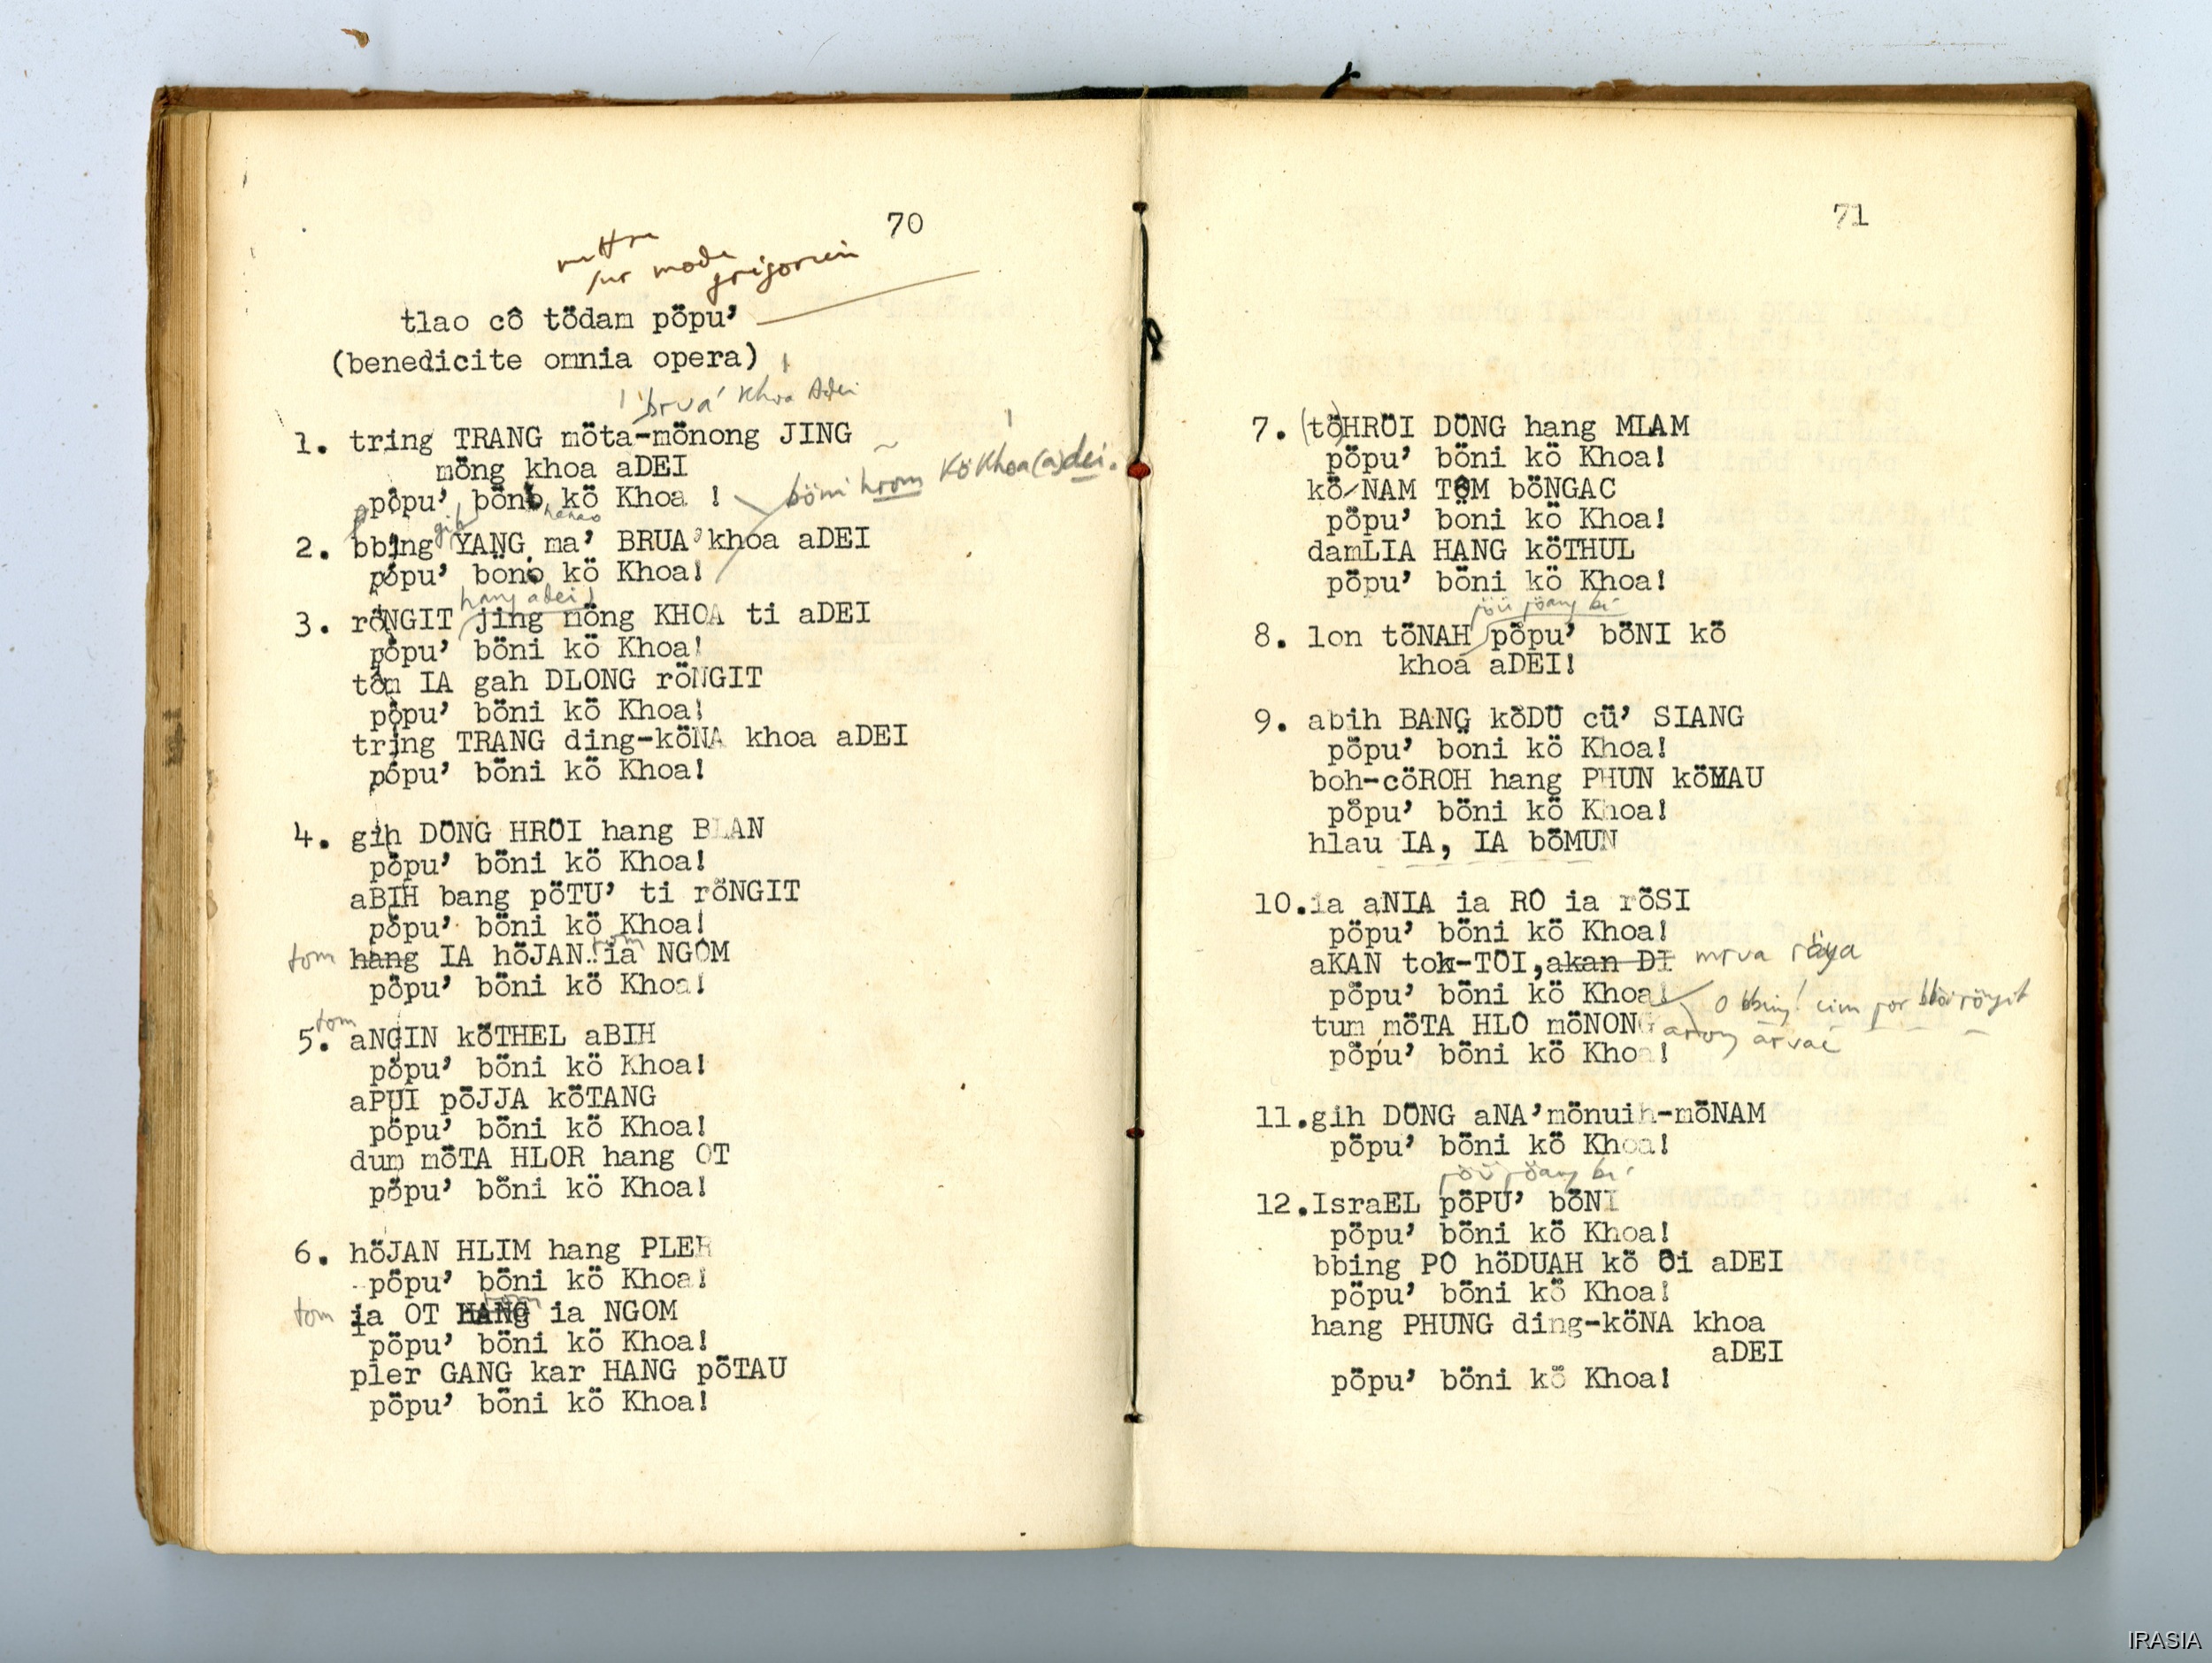 70
mettre
sur mode
grégorien
tlao cô tödam pöpu’
(benedicite omnia opera)
brua' Khoa Adei
1. tring TRANG möta-mönong JING
möng khoa aDEI
pöpu’ böni kö Khoa !
böni hrom Kö Khoa (a)dei.
gih
2. bbing YANG ma’ BRUA’khoa aDEI
pöpu’ böni kö Khoa!
hang adei
3. röNGIT jing nöng KHOA ti aDEI
pöpu’ böni kö Khoa!
töm IA gah DLONG röNGIT
pöpu’ böni kö Khoa!
tring TRANG ding-köNA khoa aDEI
pöpu’ böni kö Khoa!
4. gih DÖNG HRÖI hang BLAN
pöpu’ böni kö Khoa!
aBIH bang pöTU’ ti röNGIT
pöpu’ böni kö Khoa!
tom
tom hang IA höJAN ia NGOM
pöpu’ böni kö Khoa!
tom
5. aNGIN köTHEL aBIH
pöpu’ böni kö Khoa!
aPUI pöJJA köTANG
pöpu’ böni kö Khoa!
dum möTA HLOR hang OT
pöpu’ böni kö Khoa!
6. höJAN HLIM hang PLER
pöpu’ böni kö Khoa!
tom ia OT HANG ia NGOM
pöpu’ böni kö Khoa!
pler GANG kar HANG pöTAU
pöpu’ böni kö Khoa!
71
7. (tö)HRÖI DÖNG hang MLAM
pöpu’ böni kö Khoa!
kö NAM TÖM böNGAC
pöpu’ böni kö Khoa!
damLIA HANG köTHUL
pöpu’ böni kö Khoa!
jöü jöang bi
8. lon töNAH pöpu’ böNI kö
khoa aDEI!
9. abih BANG köDÜ cü’ SIANG
pöpu’ böni kö Khoa!
boh-cöROH hang PHUN köMAU
pöpu’ böni kö Khoa!
hlau IA, IA böMUN
10.ia aNIA ia RO ia röSI
pöpu’ böni kö Khoa!
aKAN tok-TÖI,akan DI mrva röya
pöpu’ böni kö Khoa!
O bbing! cim por röngit
tum möTA HLÔ möNONG
pöpu’ böni kö Khoa!
11.gih DÖNG aNA’mönuih-möNAM
pöpu’ böni kö Khoa!
jöü jöang bi
12.IsraEL pöPU’ böNI
pöpu’ böni kö Khoa!
bbing PÔ höDUAH kö Öi aDEI
pöpu’ böni kö Khoa!
hang PHUNG ding-köNA khoa
aDEI
pöpu’ böni kö Khoa!
IRASIA